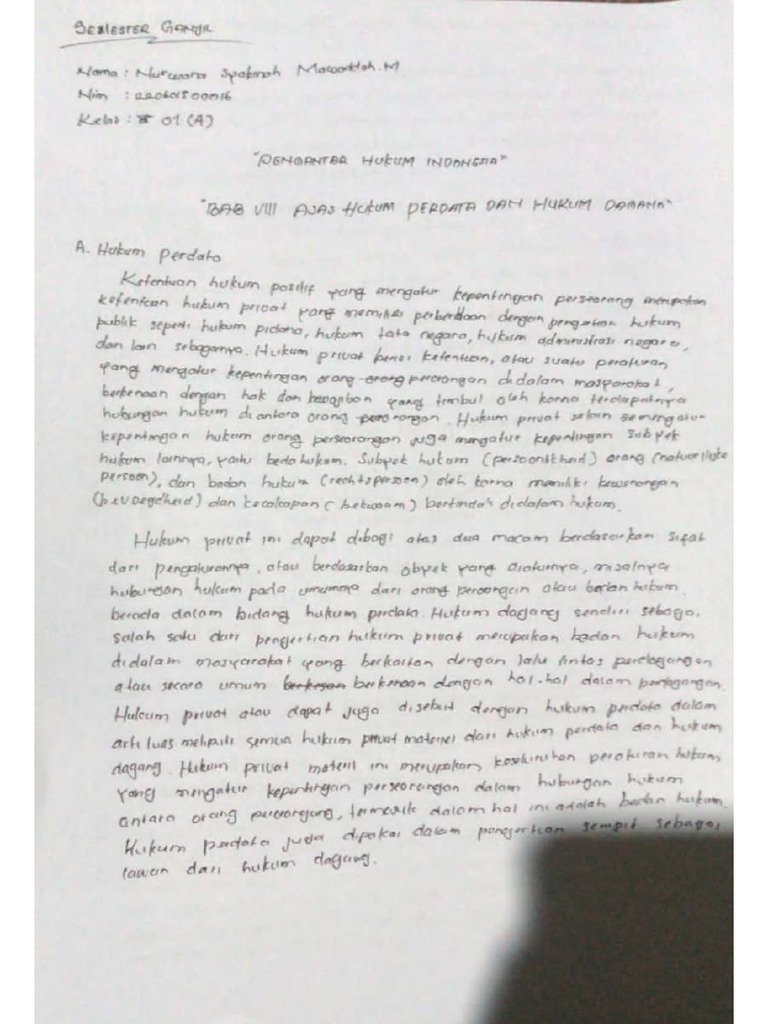 SEMESTER GANJIL
Nama : Nurwana Syakinah Mawaddah.M
Nim : 220601500016
Kelas : 01 (A)
"PENGANTAR HUKUM INDONESIA"
"BAB VIII ASAS HUKUM PERDATA DAN HUKUM DAGANG"
A. Hukum Perdata
Ketentuan hukum positif yang mengatur kepentingan perseorang merupakan
ketentuan hukum privat yang memiliki perberdaan dengan pengertian hukum
publik seperti hukum pidana, hukum tata negara, hukum administrasi negara,
dan lain sebagainya. Hukum privat berisi ketentuan, atau suatu peraturan
yang mengatur kepentingan orang-orang perorangan didalam masyarakat,
berkenaan dengan hak dan kewajiban yang timbul oleh karna terdapatnya
hubungan hukum diantara orang perorangan. Hukum privat selain mengatur
kepentingan hukum orang perseorangan juga mengatur kepentingan subyek
hukum lainnya, yaitu badan hukum. Subyek hukum (persoonlikheid) orang (natuurlijke
persoon), dan badan hukum (rechtspersoon) oleh karna memiliki kewenangan
(bevoegdheid) dan kecakapan (bekwaam) bertindak didalam hukum.
Hukum privat ini dapat dibagi atas dua macam berdasarkan sifat
dari pengaturannya, atau berdasarkan obyek yang diaturnya, misalnya
hubungan hukum pada umumnya dari orang perorangan atau badan hukum
berada dalam bidang hukum perdata. Hukum dagang sendiri sebagai
salah satu dari pengertian hukum privat merupakan badan hukum
didalam masyarakat yang berkaitan dengan lalu lintas perdagangan
atau secara umum berkenaan dengan hal-hal dalam perdagangan.
Hukum privat atau dapat juga disebut dengan hukum perdata dalam
arti luas meliputi semua hukum privat materiel dari hukum perdata dan hukum
dagang. Hukum privat materil ini merupakan keseluruhan peraturan hukum
yang mengatur kepentingan perseorangan dalam hubungan hukum
antara orang perorangang, termasuk dalam hal ini adalah badan hukum.
Hukum perdata juga dipakai dalam pengertian sempit sebagai
lawan dari hukum dagang.